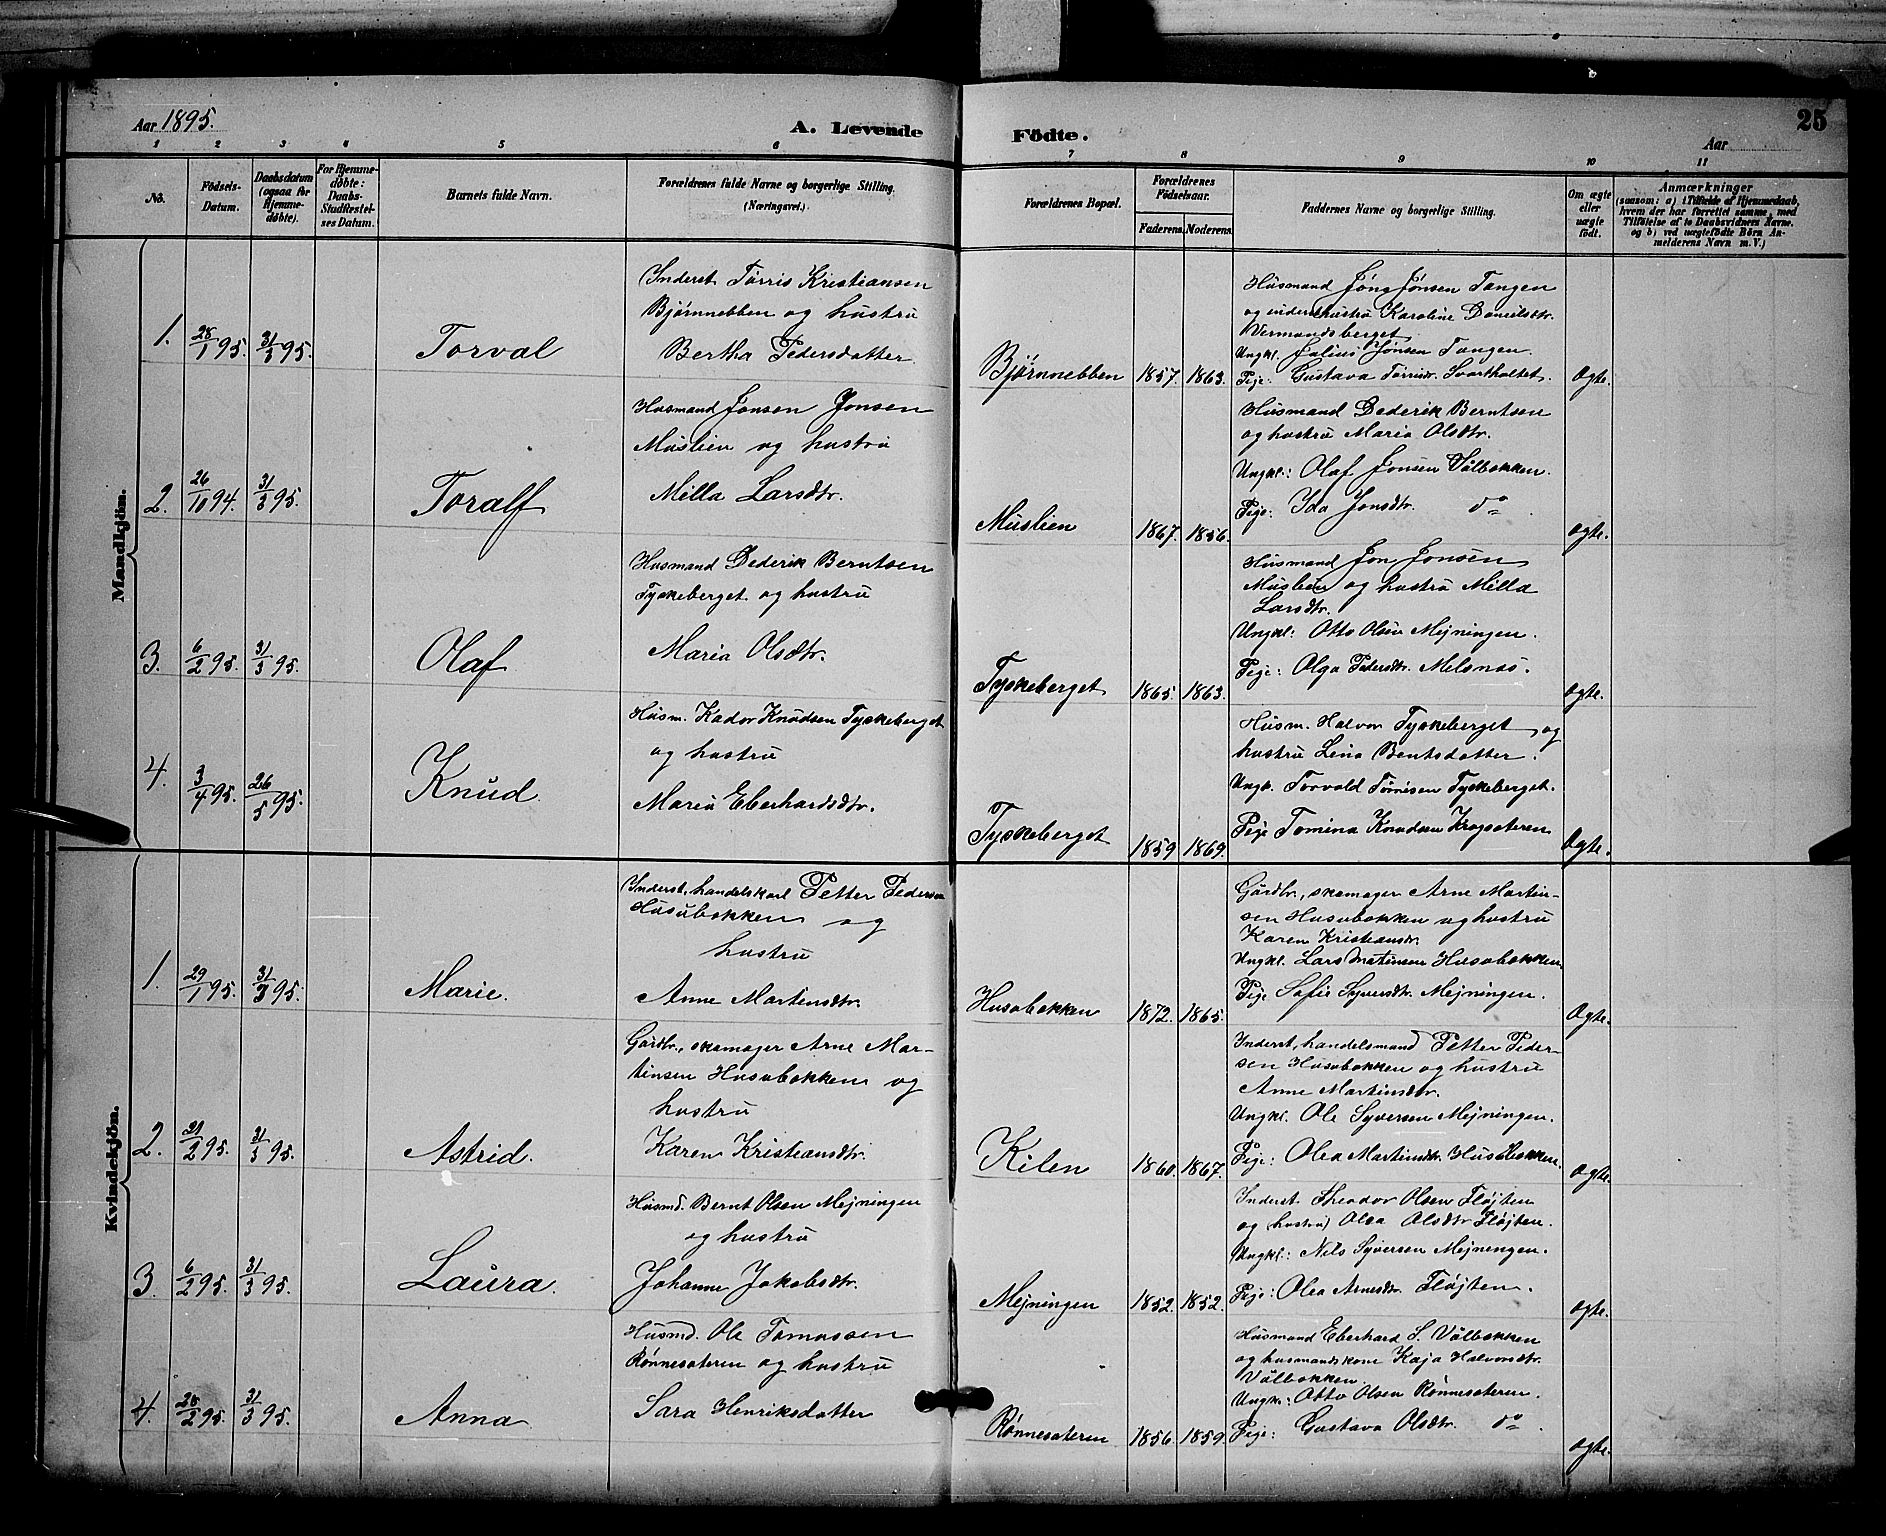 Aar 1895.
A. Levende Födte.
Aar
25
1 2 3 4 5 6 7 8 9 10 11
No.
Födsels-Datum.
Daabsdatum (ogsaa for Hjemme-döbte).
For Hjemme-döbte: Daabs-Stadfæstel-ses Datum.
Barnets fulde Navn.
Forældrenes fulde Navne og borgerlige Stilling. (Næringsvei.)
Forældrenes Bopæl.
Forældrenes Födselsaar.
Faderens. Moderens.
Faddernes Navne og borgerlige Stilling.
Om ægte eller uægte födt.
Anmærkninger
(saasom: a) i Tilfælde af Hjemmedaab, hvem der har forrettet samme, med Tilföielse af to Daabsvidners Navne. og b) ved uægtefödte Börn An-melderens Navn m. V.)
Mandkjön.
1. 28/1 95. 31/3 95. Torval
Inderst Torris Kristiansen
Bjørnnebben og hustru
Bertha Pedersdatter
Bjørnnebben 1857. 1863.
Husmand Jóns Jónsen Tangen
og inderst hustru Karoline Danielsdtr.
Vermundsberget
Ungkl. Julius Jónsen Tangen.
Pige: Gustava Torrisdr. Svartholtet.
Ogte.
2. 26/10 94. 31/3 95. Toralf
Husmand Jonsen Jonsen
Muslien og hustru
Milla Larsdtr.
Muslien 1867. 1856.
Husmand Dederik Berntsen
og hustru Maria Olsdtr.
Ungkl: Olaf Jonsen Vålbakken.
Pige: Ida Jonsdtr. do
ogte.
3. 6/2 95. 31/3 95. Olaf
Husmand Dederik Berntsen
Tyskeberget og hustru
Maria Olsdtr.
Tyskeberget 1865. 1863.
Husmand Jon Jonsen
Muslien og hustru Milla
Larsdtr.
Ungkl: Otto Olsen Mejningen.
Pige: Olga Pedersdtr. Melsnes.
ogte.
4. 3/4 95. 26/5 95. Knud.
Husm. Kador Knudsen Tyskeberget
og hustru
Maria Eberhardsdtr.
Tyskeberget 1859 1869.
Husm. Halvor Tyskeberget og
hustru Lina Bentsdatter.
Ungk. Torvald Tørrisen Tyskeberget.
Pige Tomina Knudsen Krogsæteren
Ogte.
Kvindekjön.
1. 29/1 95. 31/3 95. Marie.
Inderst, handelskarl Petter Pedersen
Husubakken og
hustru
Anne Martinsdtr.
Husubakken 1872. 1865.
Gårdbr., skamager Arne Martin-
sen Husubakken og hustru
Karen Kristiansdtr.
Ungkl. Lars Matinsen Husubakken.
Pige Sofie Syversdtr. Mejningen.
Ogte.
2. 31/2 95. 31/3 95. Astrid.
Gårdbr., skamager Arne Mar-
tinsen Husubakken og
hustru
Karen Kristiansdtr.
Kilen 1860. 1867.
Inderst, handelsmand Petter Peder-
sen Husubakken og hustru
Anne Martinsdtr.
Ungkl. Ole Syversen Mejningen.
Pige: Olea Martinsdtr. Husubakken.
ogte.
3. 6/2 95. 31/3 95. Laura.
Husmd. Bernt Olsen Mejningen
og hustru
Johanne Jakobsdtr.
Mejningen 1852. 1852.
Inderst Theodor Olsen Fløjten
og hustru Olea Olsdtr Fløjten.
Ungkl: Nils Syversen Mejningen.
Pige: Olea Arnesdtr Fløjten.
ogte.
4. 28/2 95. 31/3 95. Anna
Husmd. Ole Tomassen
Rønnesæteren og hustru
Sara Henriksdatter
Rønnesæteren 1856. 1859.
Husmand Eberhard S. Vålbakken
og husmandskone Kaja Halvorsdtr.
Vålbakken.
Ungk: Otto Olsen Rønnesæteren.
Pige: Gustava Olsdtr. do.
ogte.